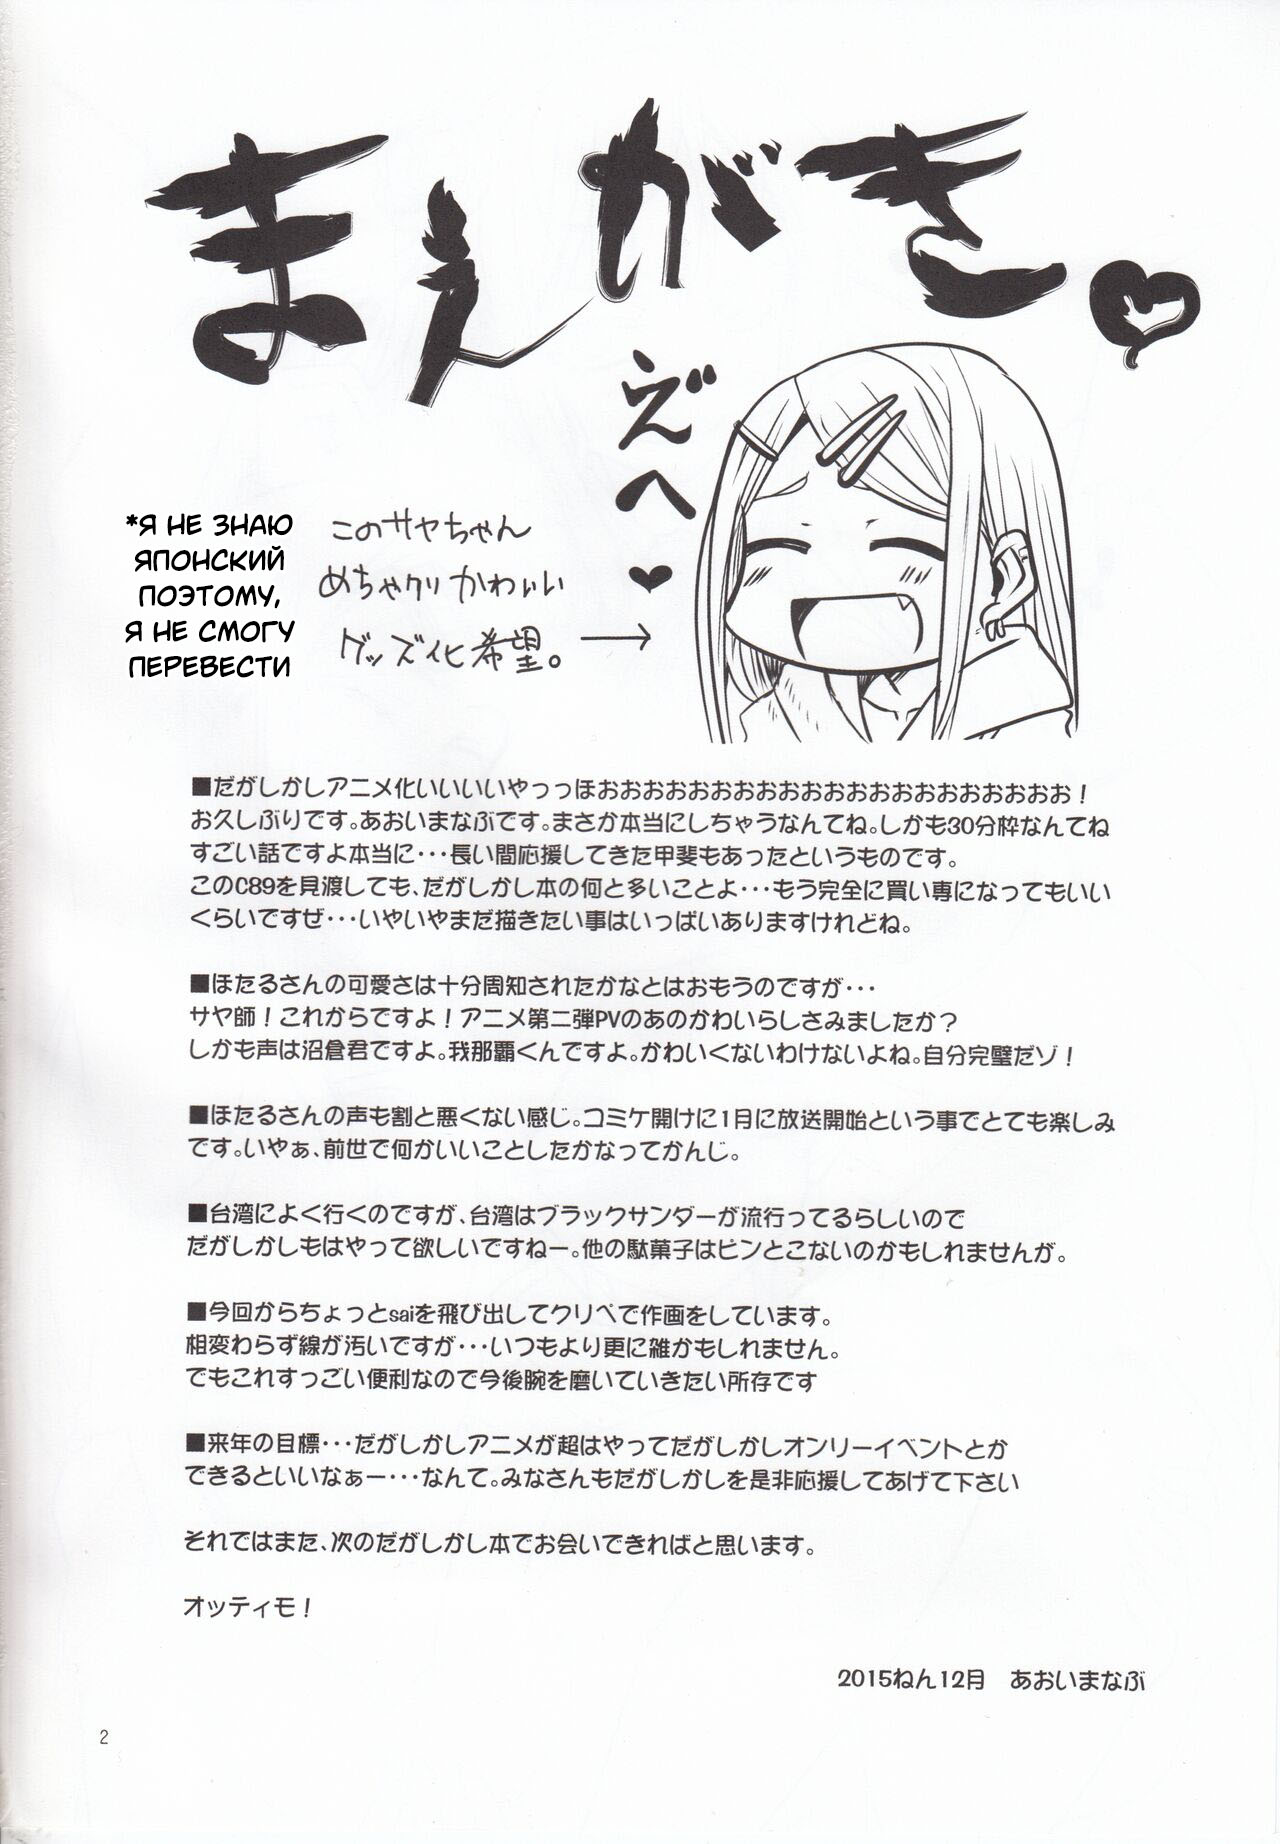 まえがき
えへ
*Я НЕ ЗНАЮ
ЯПОНСКИЙ
ПОЭТОМУ,
Я НЕ СМОГУ
ПЕРЕВЕСТИ
このサヤちゃん
めちゃクリかわいい
グッズ化希望。
■だがしかしアニメ化いいいいやっっほおおおおおおおおおおおおおおおおおおおおお!
お久しぶりです。あおいまなぶです。まさか本当にしちゃうなんてね。しかも30分枠なんてね
すごい話ですよ本当に・・・長い間応援してきた甲斐もあったというものです。
このC89を見渡しても、だがしかし本の何と多いことよ・・・もう完全に買い専になってもいい
くらいですぜ・・・いやいやまだ描きたい事はいっぱいありますけれどね。
■ほたるさんの可愛さは十分周知されたかなとはおもうのですが・・・
サヤ師!これからですよ!アニメ第二弾PVのあのかわいらしさみましたか?
しかも声は沼倉君ですよ。我那覇くんですよ。かわいくないわけないよね。自分完璧だゾ!
■ほたるさんの声も割と悪くない感じ。コミケ開けに1月に放送開始という事でとても楽しみ
です。いやぁ、前世で何かいいことしたかなってかんじ。
■台湾によく行くのですが、台湾はブラックサンダーが流行ってるらしいので
だがしかしもはやって欲しいですねー。他の駄菓子はピンとこないのかもしれませんが。
■今回からちょっとsaiを飛び出してクリペで作画をしています。
相変わらず線が汚いですが・・・いつもより更に雑かもしれません。
でもこれすっごい便利なので今後腕を磨いていきたい所存です
■来年の目標・・・だがしかしアニメが超はやってだがしかしオンリーイベントとか
できるといいなぁー・・・なんて。みなさんもだがしかしを是非応援してあげて下さい
それではまた、次のだがしかし本でお会いできればと思います。
オッティモ!
2015ねん12月 あおいまなぶ
2